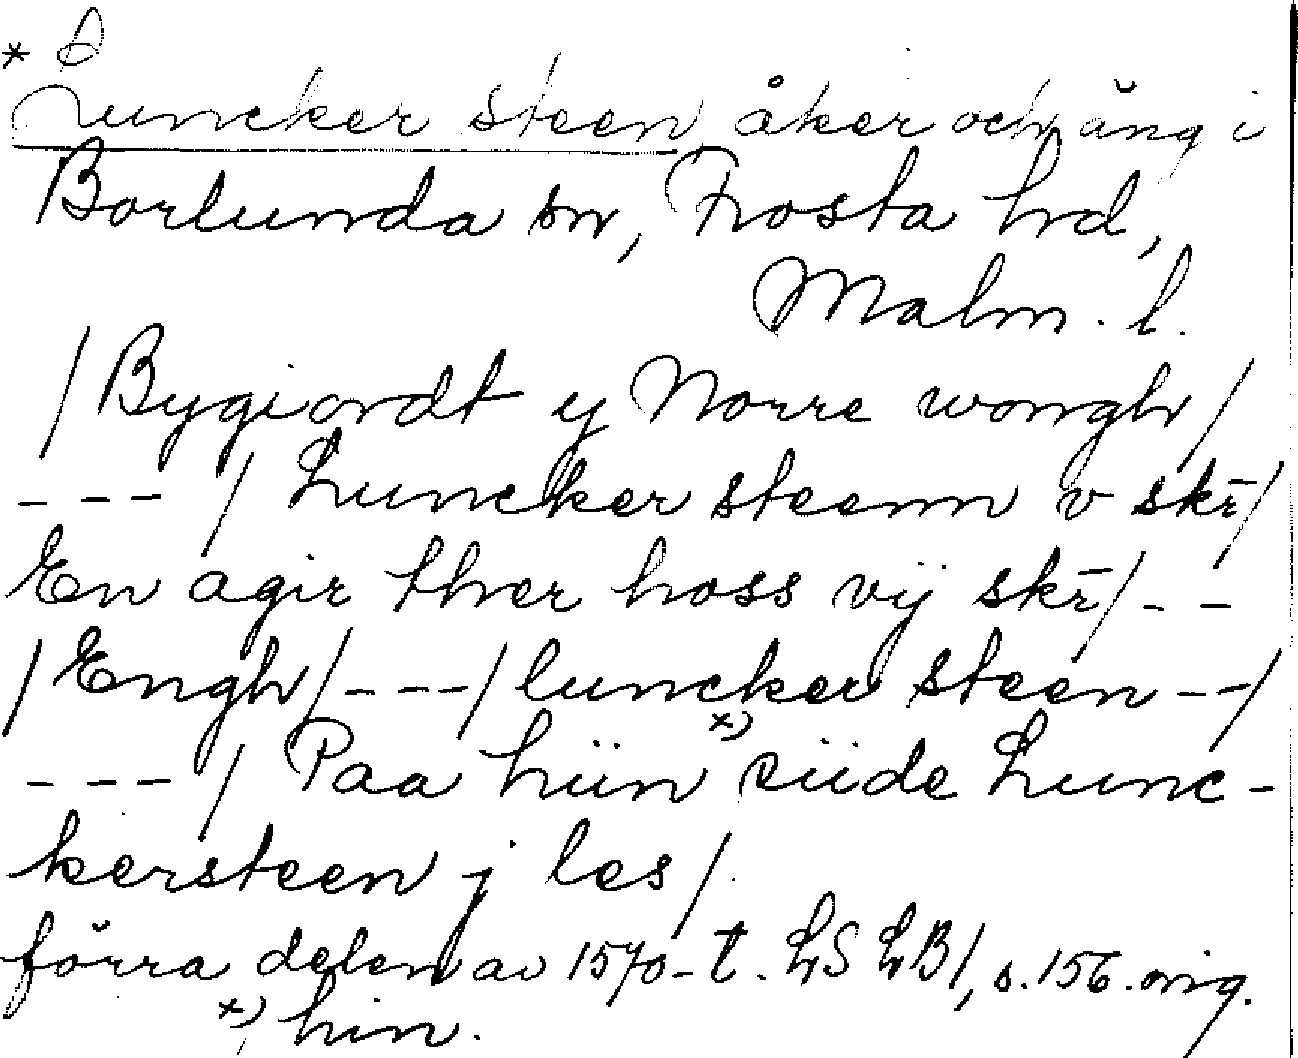 * D
Luncker steen, åker och äng i
Borlunda sn, Frosta hd,
Malm. l.
/Bygiordt y Norre wongh/
--- / Luncker steenn v skr̄/
En agir ther hoss vij skr̄/ - -
/Engh/---/luncker steen --/
--- / Paa hiin x) siide Lunc-
kersteen j les/.
förra delen av 1570-t. LS LB1, s. 156. orig.
x) hin.